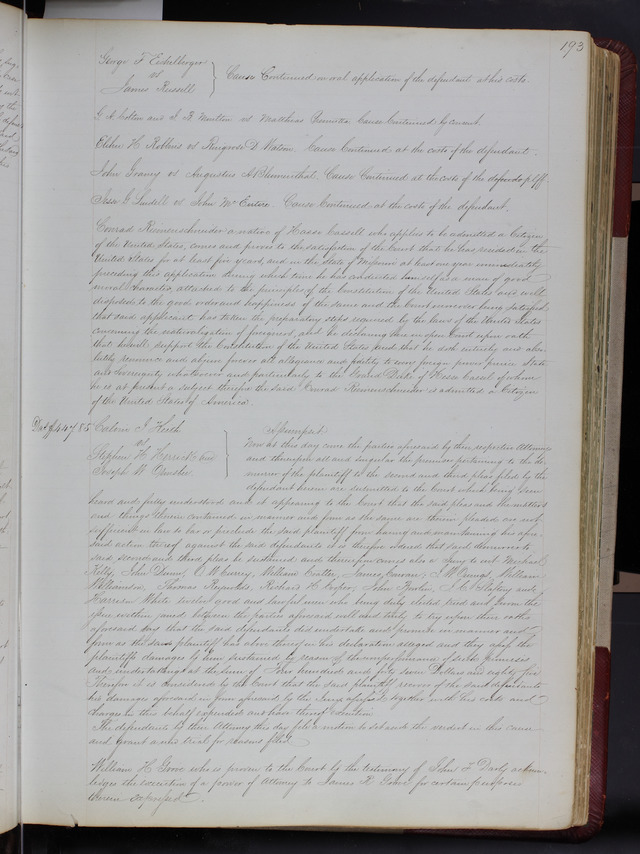 193
George F. Eichelberger
vs
James Russell
Cause Continued on oral application of the defendant at his costs.
G A Colton and J. B Moulton vs Matthias Cause Continued by consent
Elihu H. Robbins vs Ringrose D Watson. Cause Continued at the costs of the defendant.
John vs Augustus A Blumenthal. Cause Continued at the costs of the pltff
Jesse G Lindell vs John McEntire Cause Continued at the costs of the defendant.
Conrad Riemenschneider a native of Hesse Cassell who applies to be admitted a Citizen
of the United States, comes and proves to the satisfaction of the Court that he has resided in the
United States for at least five years, and in the State of Missouri at least one year immediately
preceding this application during which time he has conducted himself as a man of good
moral Character, attached to the principles of the Constitution of the United States and well
disposed to the good order and happiness of the same and the Court moreover being satisfied
that said applicant has taken the preparatory steps required by the laws of the United States
concerning the naturalization of foreigners, and he declaring here in open Court upon oath
that he will support the Constitution of the United States and that he doth entirely and abso
lutely renounce and abjure forever all allegiance and fidelity to every foreign power prince State
and Sovereignty whatsoever and particularly to the Grand Duke of Hesse Cassel of whom
he is at present a subject therefore the said Conrad Riemenschneider is admitted a Citizen
of the United States of America
Calvin J. Heith
vs
Stephen H. Herrick and
Joseph W.
Assumpsit
Now at this day come the parties aforesaid by their respective Attorneys
and thereupon all and singular the premises pertaining to the de
murrer of the plaintiff to the second and third pleas filed by the
defendants herein are submitted to the Court which being seen
heard and fully understood and it appearing to the Court that the said pleas and the matters
and things therein contained in manner and form as the same are therein pleaded are not
sufficient in law to bar or preclude the said plaintiff from having and maintaining his afore
said action thereof against the said defendants it is therefore ordered that said demurrer to
said second and third pleas be sustained and thereupon comes also a Jury to wit Michael
Kelly, John Dunn, C W Currey, William Coulter, James Cannon, William
Williamson, Thomas Reynolds, Richard H John and
Harrison White twelve good and lawful men who being duly elected tried and sworn the
issue within joined between the parties aforesaid well and truly to try upon their oaths
aforesaid say that the said defendants did undertake and promise in manner and
form as the said plaintiff hath above thereof in his declaration alleged and they assess the
plaintiffs damages by him sustained by reason of the nonperformance of said promises
and undertakings at the sum of four hundred and fifty seven Dollars and eighty five
Therefore it is considered by the Court that the said plaintiff recover of the said defendants
his damages aforesaid in form aforesaid by the Jury assessed together with his costs and
charges in this behalf expended and have thereof execution
The defendants by their Attorney this day file a motion to set aside the verdict in this cause
and grant a new trial for reasons filed.
William H. Grove who is proven to the Court by the testimony of John F Darby acknow
ledges the execution of a power of Attorney to James H. Grove for certain purposes
therein expressed.